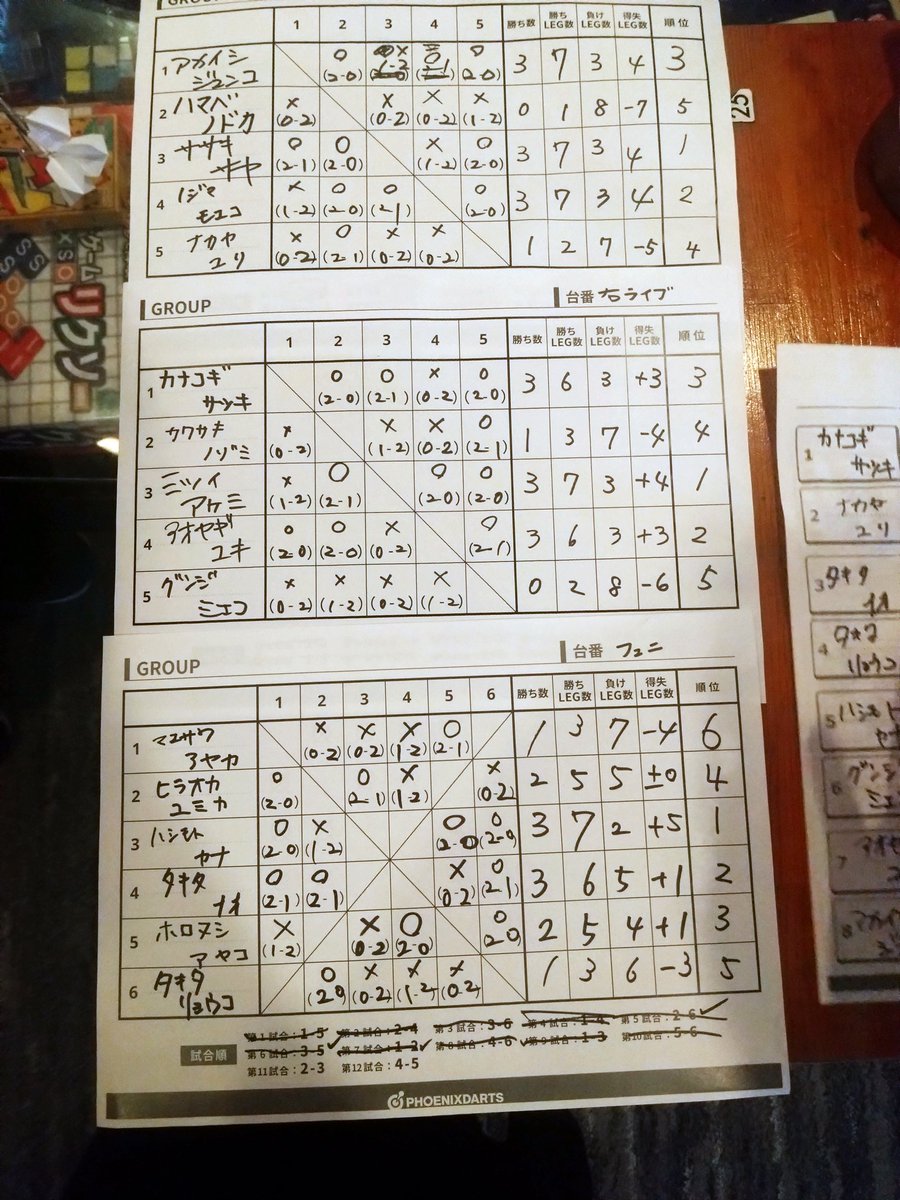 GROUP
1 2 3 4 5 勝ち数 勝ちLEG数 負けLEG数 得失LEG数 順位
1 アカイシ ジュンコ ○(2-0) ×1-2 ○ ○(2-0) 3 7 3 4 3
2 ハマベ ノドカ ×(0-2) ×(0-2) ×(0-2) ×(1-2) 0 1 8 -7 5
3 ササキ サヤ ○(2-1) ○(2-0) ×(1-2) ○(2-0) 3 7 3 4 1
4 ノジマ モエコ ×(1-2) ○(2-0) ○(2-1) ○(2-0) 3 7 3 4 2
5 ナカヤ ユリ ×(0-2) ○(2-1) ×(0-2) ×(0-2) 1 2 7 -5 4
GROUP 台番 右ライブ
1 2 3 4 5 勝ち数 勝ちLEG数 負けLEG数 得失LEG数 順位
1 カナコギ サツキ ○(2-0) ○(2-1) ×(0-2) ○(2-0) 3 6 3 +3 3
2 カワサキ ノゾミ ×(0-2) ×(1-2) ×(0-2) ○(2-1) 1 3 7 -4 4
3 ミツイ アケミ ×(1-2) ○(2-1) ○(2-0) ○(2-0) 3 7 3 +4 1
4 アオヤギ ユキ ○(2-0) ○(2-0) ×(0-2) ○(2-1) 3 6 3 +3 2
5 グンジ ミエコ ×(0-2) ×(1-2) ×(0-2) ×(1-2) 0 2 8 -6 5
GROUP 台番 フェニ
1 2 3 4 5 6 勝ち数 勝ちLEG数 負けLEG数 得失LEG数 順位
1 マエザワ アヤカ ×(0-2) ×(0-2) ×(1-2) ○(2-1) 1 3 7 -4 6
2 ヒラオカ ユミカ ○(2-0) ○(2-1) ×(1-2) ×(0-2) 2 5 5 ±0 4
3 ハシモト カナ ○(2-0) ×(1-2) ○(2-0) ○(2-0) 3 7 2 +5 1
4 タキタ ナオ ○(2-1) ○(2-1) ×(0-2) ○(2-1) 3 6 5 +1 2
5 ホロヌシ アヤコ ×(1-2) ×(0-2) ○(2-0) ○(20) 2 5 4 +1 3
6 タキタ リョウコ ○(20) ×(0-2) ×(1-2) ×(0-2) 1 3 6 -3 5
試合順
第1試合:1-5 第2試合:2-4 第3試合:3-6 第4試合:1-4 第5試合:2-6
第6試合:3-5 第7試合:1-2 第8試合:4-6 第9試合:1-3 第10試合:5-6
第11試合:2-3 第12試合:4-5
PHOENIXDARTS
25
1 カナコギ サツキ
2 ナカヤ ユリ
3 タキタ ナオ
4 タキタ リョウコ
5 ハシモト カナ
6 グンジ ミエ
7 アオヤ
8 アカイシ
ゲームリンクソー